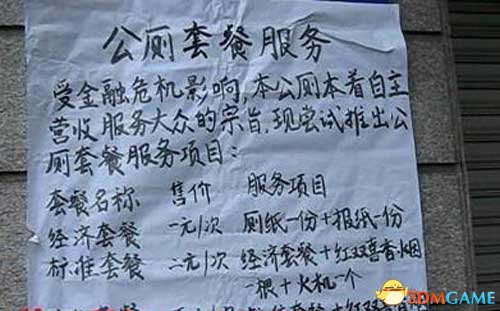 公厕套餐服务
受金融危机影响,本公厕本着自主
营收服务大众的宗旨,现尝试推出公
厕套餐服务项目:
套餐名称 售价 服务项目
经济套餐 一元/次 厕纸一份+报纸一份
标准套餐 二元/次 经济套餐+红双喜香烟
一根+火机一个
3DMGAME